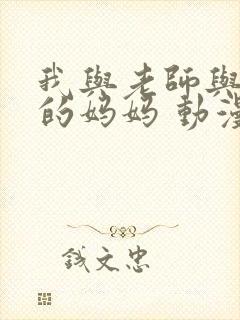 我與老師與
的妈妈 動漫
錢文忠